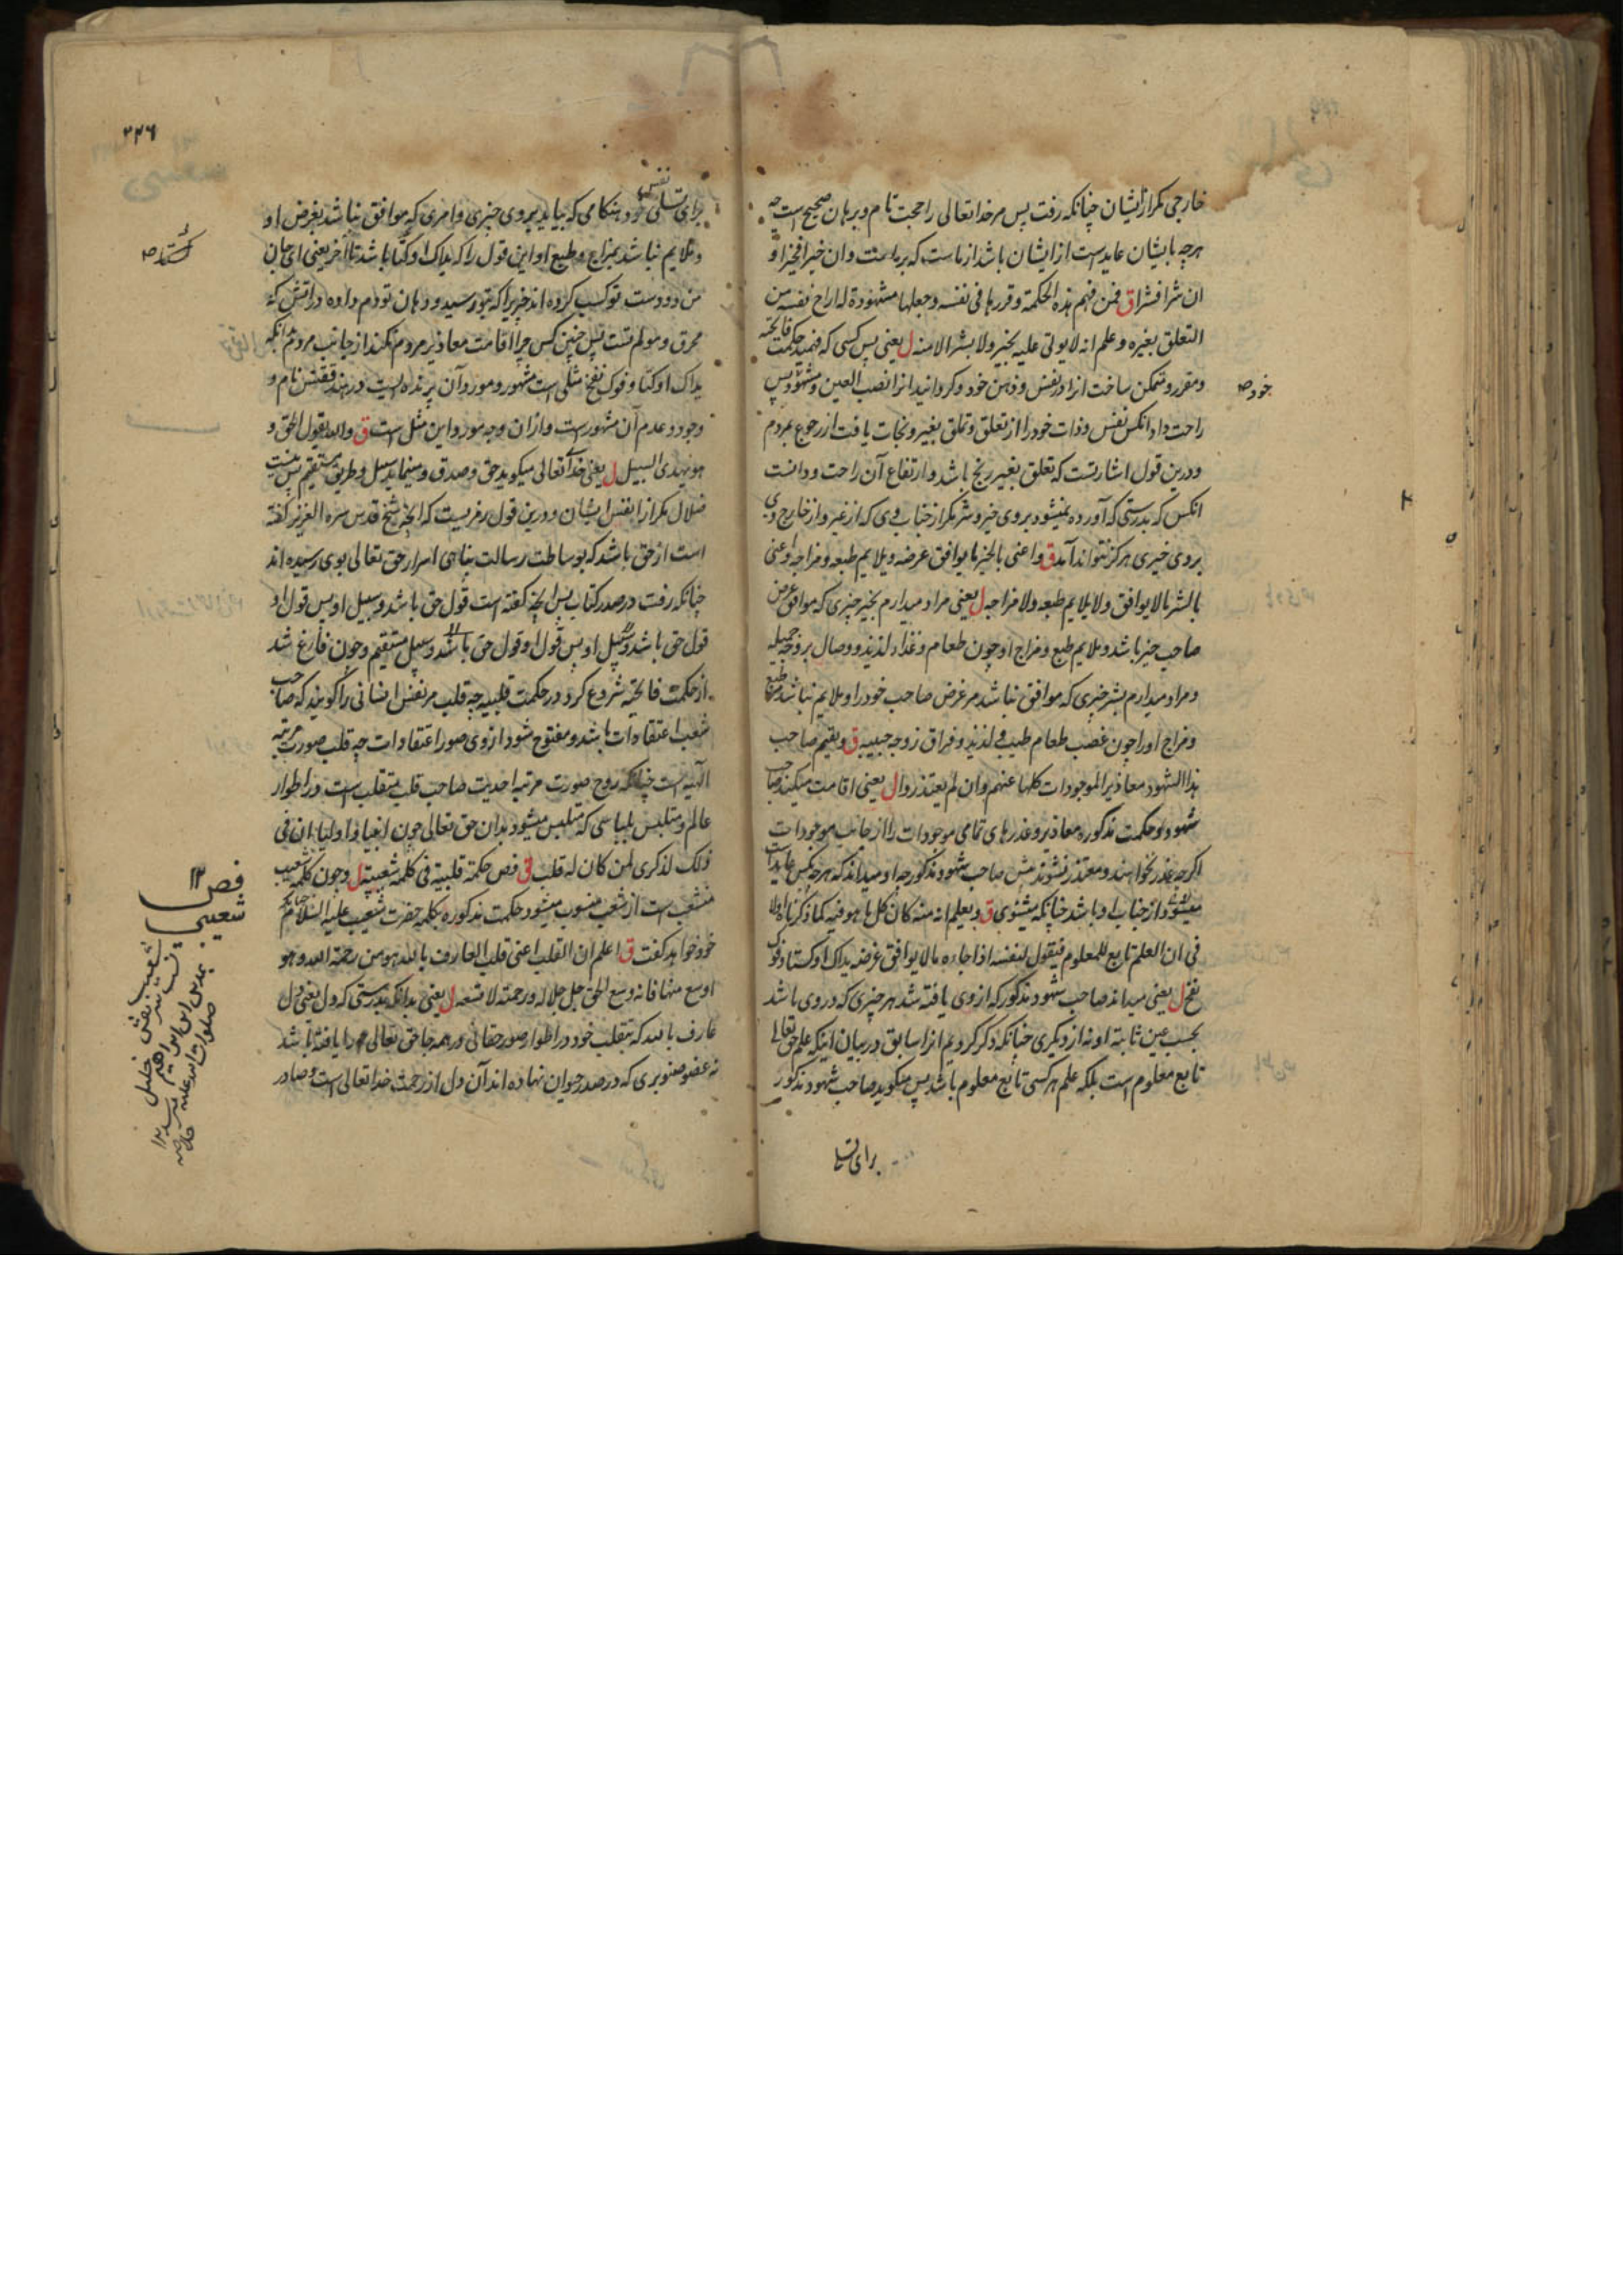 خارجی مکر از ایشان چنانکه رفت پس مر خدا تعالی را حجت تام و برهان صحیح است چه
هرچه بایشان عاید است از ایشان باشد از ماست که بر ماست وان خیرا فخیرا و
ان شرا فشرا ق فمن فهم هذه الحکمة و قررها فی نفسه و جعلها مشهودة له اراح نفسه من
التعلق بغیره و علم انه لا یوتی علیه بخیر ولا بشر الا منه ل یعنی پس کسی که فهمید حکمت فاتحیه
و مقرر و متمکن ساخت انرا در نفس و ذهن خود و کردانید انرا نصب العین و مشهود پس
خود صح
راحت داد انکس نفس و ذات خود را از تعلق و تملق بغیر و نجات یافت از رجوع بمردم
و درین قول اشارتست که تعلق بغیر رنج باشد و ارتفاع آن راحت و دانست
انکس که بدرستی که آورده نمیشود بروی خیر و شر مکر از جناب وی که از غیر و از خارج وی
بروی خیری هرکز نتواند آمد ق و اعنی بالخیر ما یوافق غرضه و یلایم طبعه و مزاجه و اعنی
بالشر ما لا یوافق ولا یلایم طبعه ولا مزاجه ل یعنی مراد میدارم بخیر چیزی که موافق غرض
صاحب خیر باشد و ملایم طبع و مزاج او چون طعام و غذاء لذیذ و وصال بزوجه جمیله
و مراد میدارم بشر چیزی که موافق نباشد مر غرض صاحب خود را و ملایم نباشد مر طبع
و مزاج او را چون غصب طعام طیب لذیذ و فراق زوجه حبیبه ق و یقیم صاحب
هذا الشهود معاذیر الموجودات کلها عنهم وان لم یعتذروا ل یعنی اقامت میکند صاحب
شهود حکمت مذکوره معاذیر و عذرهای تمامی موجودات را از جانب موجودات
اکرچه عذر نخواهند و معتذر نشوند پیش صاحب شهود مذکور چه او میداند که هرچه بکس عاید است
میشود از جناب او باشد چنانکه میشنوی ق و یعلم انه منه کان کل ما هو فیه کما ذکرناه اولا
فی ان العلم تابع للمعلوم فیقول لنفسه اذا جاءه ما لا یوافق غرضه یداک اوکتا و فوک
نفخ ل یعنی میداند صاحب شهود مذکور که از وی یافته شد هر چیزی که در وی باشد
بحسب عین ثابته او نه از دیکری چنانکه ذکر کردیم انرا سابق در بیان اینکه علم حق تعالی
تابع معلوم است بلکه علم هر کسی تابع معلوم باشد پس میکوید صاحب شهود مذکور
برای تسلی
۲۲۶
نفس
برای تسلی خود هنکامی که بیاید بروی چیزی و امری که موافق نباشد بغرض او
و ملایم نباشد بمزاج و طبع او این قول را که یداک اوکتا باشد تا آخر یعنی ای جان
من دو دست تو کسب کرده اند چیزیرا که بتو رسید و دهان تو دم داده در آتش که
محرق و مولم تست پس چنین کس چرا اقامت معاذیر مردم نکند از جانب مردم انکه
یداک اوکتا و فوک نفخ مثلی است مشهور و آن پرنده ایست در هند ققنس نام و
وجود و عدم آن مشهور است و این مثل است ق والله یقول الحق و
هو یهدی السبیل ل یعنی خدا تعالی میکوید حق و صدق و مینماید سبیل و طریق مستقیم پس نیست
ضلال مکر از انفس ایشان و درین قول رمزیست که انچه شیخ قدس سره العزیز کفته
است از حق باشد که بوساطت رسالت پناهی اسرار حق تعالی بوی رسیده اند
چنانکه رفت در صدر کتاب پس انچه کفته است قول حق باشد و سبیل او پس قول او
قول حق باشد و سبیل او پس قول او قول حق باشد و سبیل مستقیم و چون فارغ شد
از حکمت فاتحیه شروع کرد در حکمت قلبیه چه قلب مر نفس انسانی را کویند که صاحب
شعب اعتقادات باشد و مفتوح شود از وی صور اعتقادات چه قلب صورت مرتبه
الهیه است چنانکه روح صورت مرتبه احدیت صاحب قلب متقلب است در اطوار
عالم و متلبس بلباسی که متلبس میشود بدان حق تعالی چون انبیا و اولیا ان فی
ذلک لذکری لمن کان له قلب ق فص حکمة قلبیة فی کلمة شعیبیة ل و چون کلمه شعیب
منشعب است از شعب منسوب میشود حکمت مذکوره بکلمه حضرت شعیب علیه السلام چنانکه
خود خواهد کفت ق اعلم ان القلب اعنی قلب العارف بالله هو من رحمة الله و هو
اوسع منها فانه وسع الحق جل جلاله و رحمته لا تسعه ل یعنی بدانکه بدرستی که دل یعنی دل
عارف بالله که بتقلب خود در اطوار صور حقانی در همه جا حق تعالی را یافته باشد
نه عضو صنوبری که در صدر حیوان نهاده اند آن دل از رحمت خدا تعالی است و صادر
فص ۱۲
شعیبی